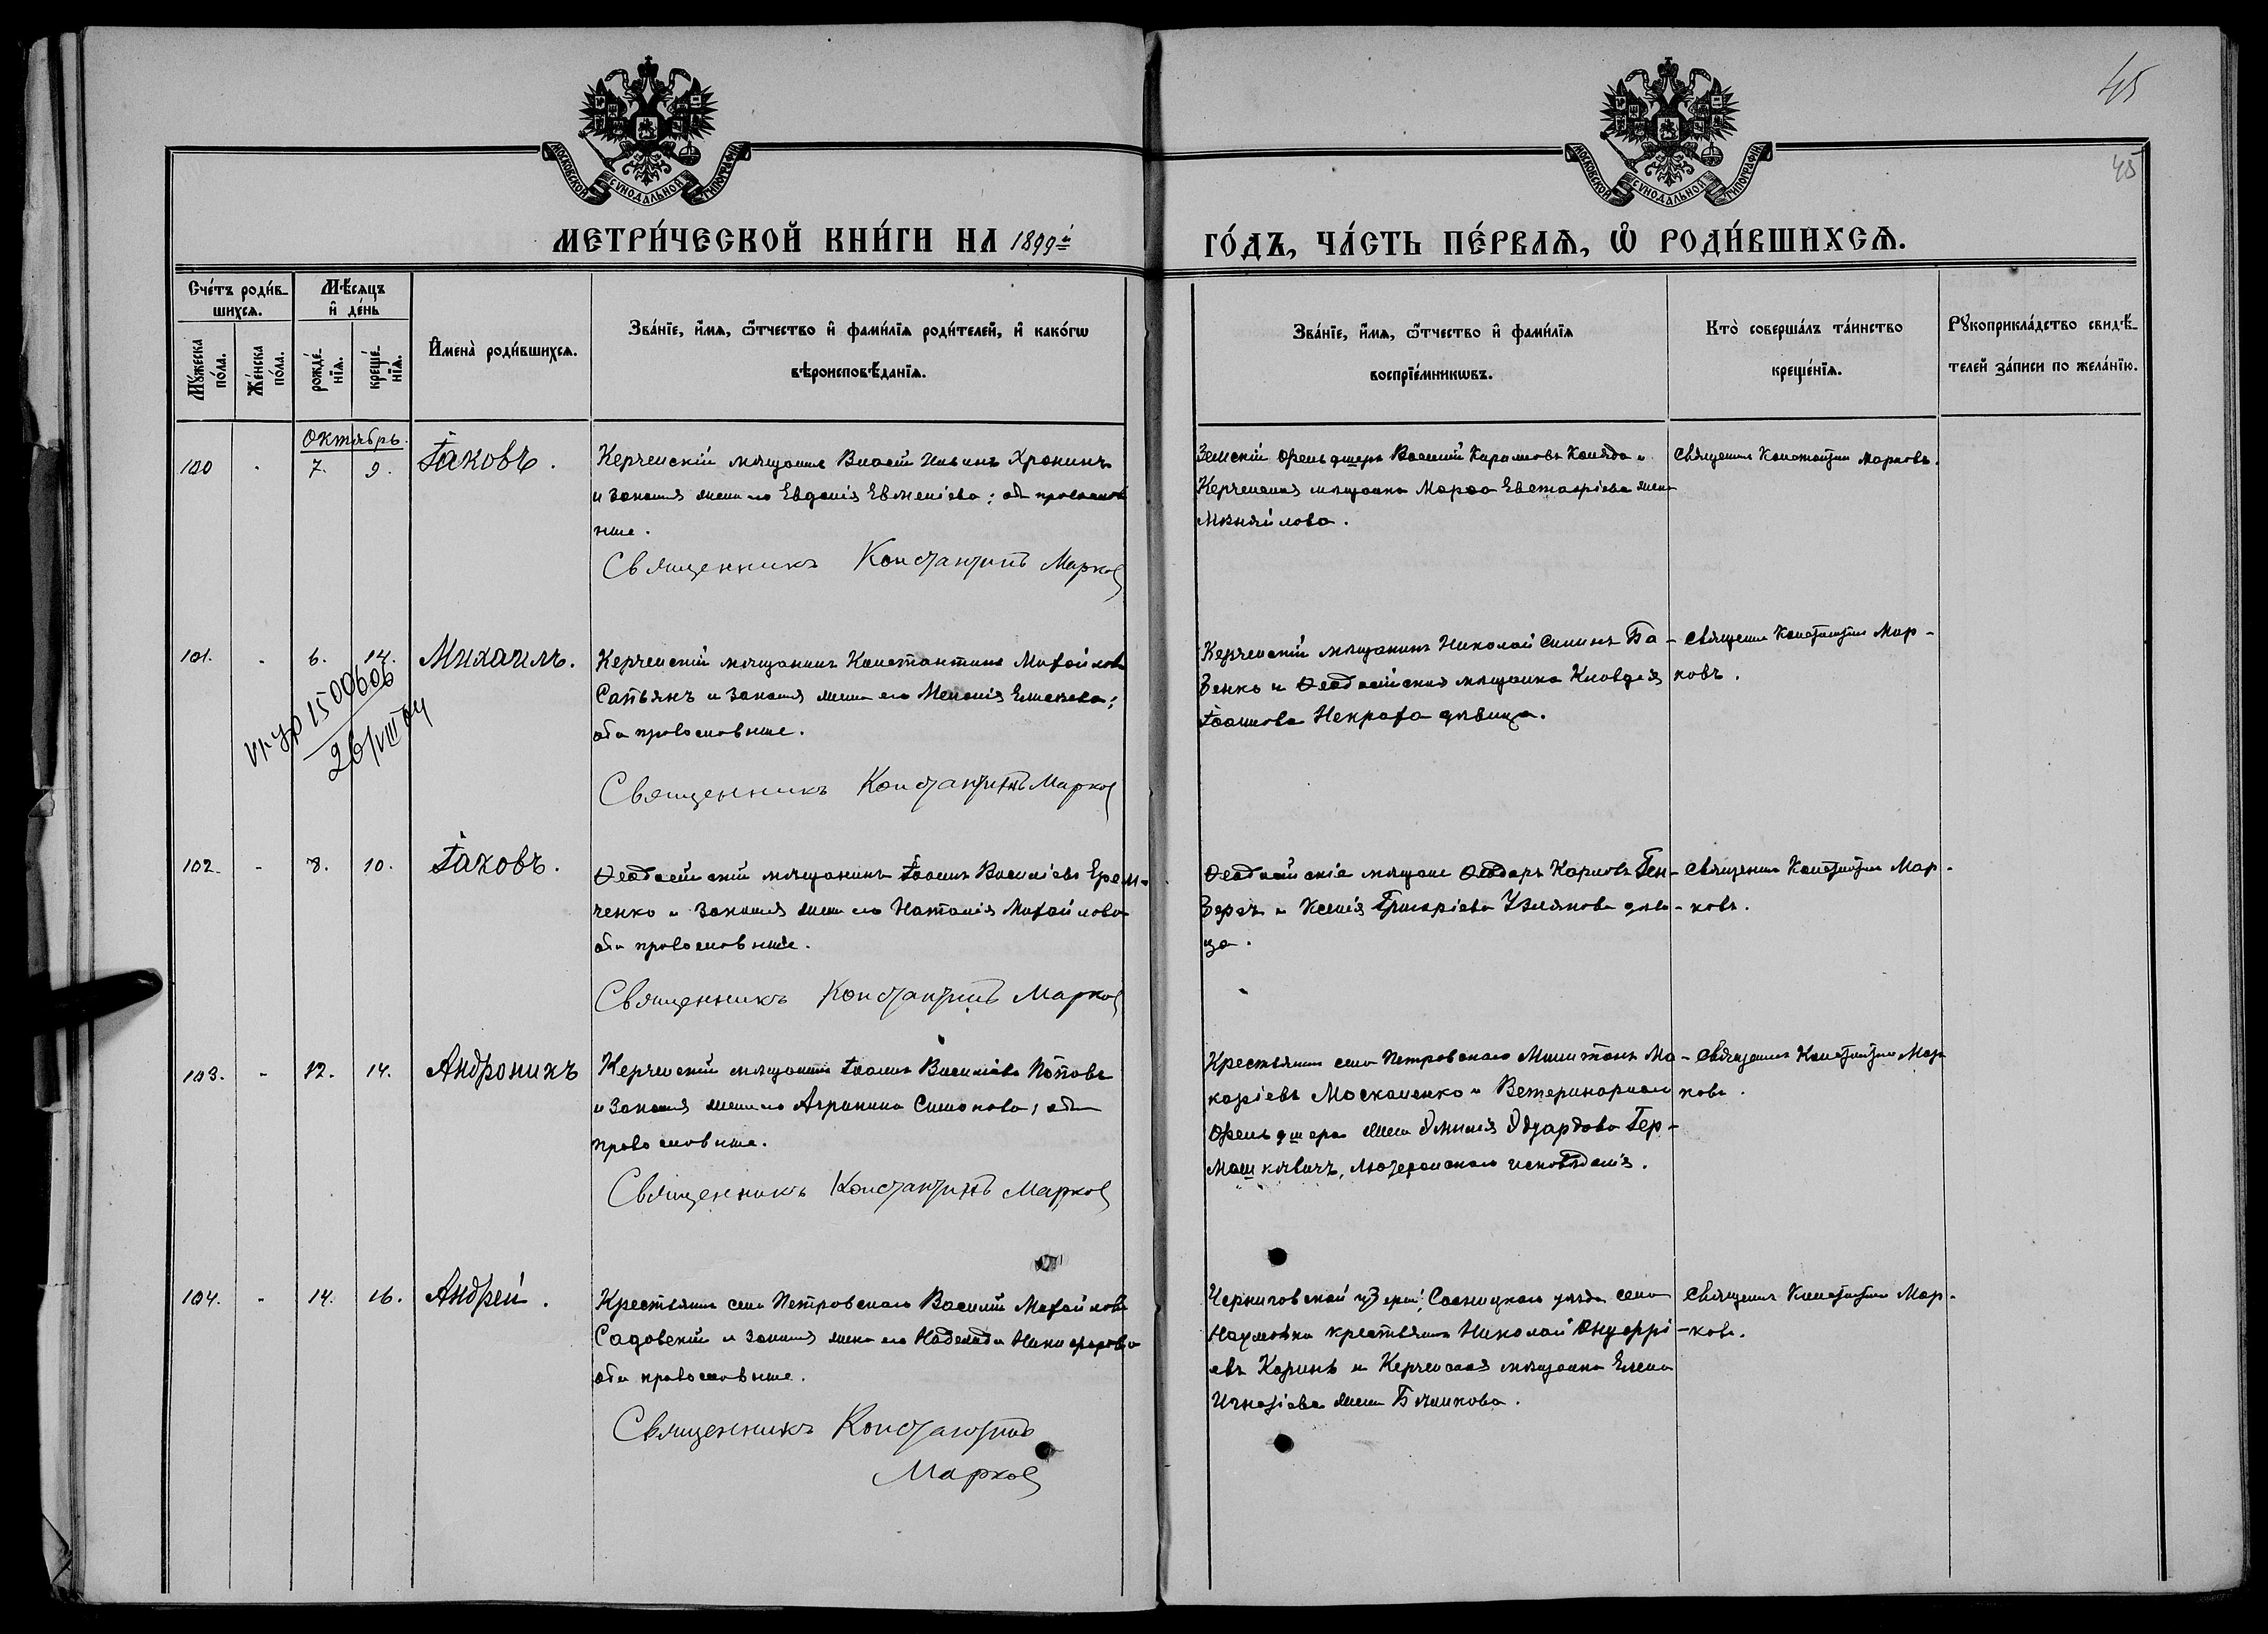 45
45
МОСКОВСКОЙ СѴНОДАЛЬНОЙ ТИПОГРАФІИ
МОСКОВСКОЙ СѴНОДАЛЬНОЙ ТИПОГРАФІИ
МЕТРИ́ЧЕСКОЙ КНИ́ГИ НА 1899й
ГО́ДЪ, ЧА́СТЬ ПЕ́РВАѦ, Ѡ РОДИ́ВШИХСѦ.
Сче́тъ роди́в-
шихсѧ.
Мꙋ́жеска по́ла.
Же́нска по́ла.
Мѣ́сѧцъ
и҆ де́нь
рожде́-
нїѧ.
креще́-
нїѧ.
И҆мена̀ роди́вшихсѧ.
Зва́нїе, и҆́мѧ, ѻ҆́тчество и҆ фами́лїѧ роди́телей, и҆ како́гѡ
вѣроисповѣ́данїѧ.
Зва́нїе, и҆́мѧ, ѻ҆́тчество и҆ фами́лїѧ
воспрїе́мникѡвъ.
Кто̀ соверша́лъ та́инство
креще́нїѧ.
Рꙋкоприкла́дство свидѣ́-
телей за́писи по жела́нїю.
Октябрь.
100 - 7. 9. Іаковъ.
Керченскій мѣщанинъ Василій Ильинъ Хронинъ
и законная жена его Евдокія Евменіева; оба православ
ные.
Священникъ Константинъ Марков
Земскій фельдшеръ Василій Карповъ Коляда и
Керченская мѣщанка Марѳа Евстафіева жена
Мѣняйлова.
Священникъ Константинъ Марковъ.
101. - 6. 14. Михаилъ.
1500606
26/VIII 04
Керченскій мѣщанинъ Константинъ Михайловъ
и законная жена его Меланія
оба православные.
Священникъ Константинъ Марков
Керченскій мѣщанинъ Николай Симинъ Ба-
зенко и Ѳеодосійская мѣщанка Клавдія
Іоаннова Некраха дѣвица.
Священникъ Константинъ Мар-
ковъ.
102. - 8. 10. Іаковъ.
Ѳеодосійскій мѣщанинъ Іоаннъ Василіевъ Ерем-
ченко и законная жена его Наталія Михайлова
оба православные.
Священникъ Константинъ Марков
Ѳеодосійскіе мѣщане Ѳеодоръ Карповъ Ген-
и Ксенія Григоріева дѣви-
ца.
Священникъ Константинъ Мар-
ковъ.
103. - 12. 14. Андроникъ
Керченскій мѣщанинъ Іоаннъ Василіевъ Поповъ
и законная жена его Агрипина Симонова; оба
православные.
Священникъ Константинъ Марков
Крестьянинъ села Петровскаго Милитонъ Ма-
каріевъ Москаленко и Ветеринарнаго
фельдшера жена Эмилія Эдуардова Гер-
машкевичъ, лютеранскаго исповѣданія.
Священникъ Константинъ Мар
ковъ.
104. - 14. 16. Андрей.
Крестьянинъ села Петровскаго Василій Михайловъ
Садовскій и законная жена его Надежда Никифорова
оба православные.
Священникъ Константинъ
Марков
Черниговской губерніи, Сосницкаго уѣзда села
Наумовки крестьянинъ Николай Онуфрі-
евъ Коринъ и Керченская мѣщанка Елена
Игнатіева жена Бѣликова.
Священникъ Константинъ Мар-
ковъ.